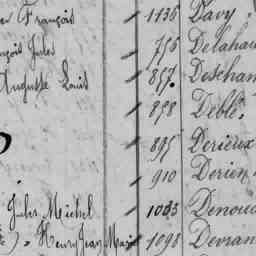 François 1136 Davy
Jules 756 Delahau
Auguste Louis 857 Descham
858 Deblé
895 Derieux
910 Derien
Jules Michel 1083 Denoue
Henry Jean Marie 1098 Devran